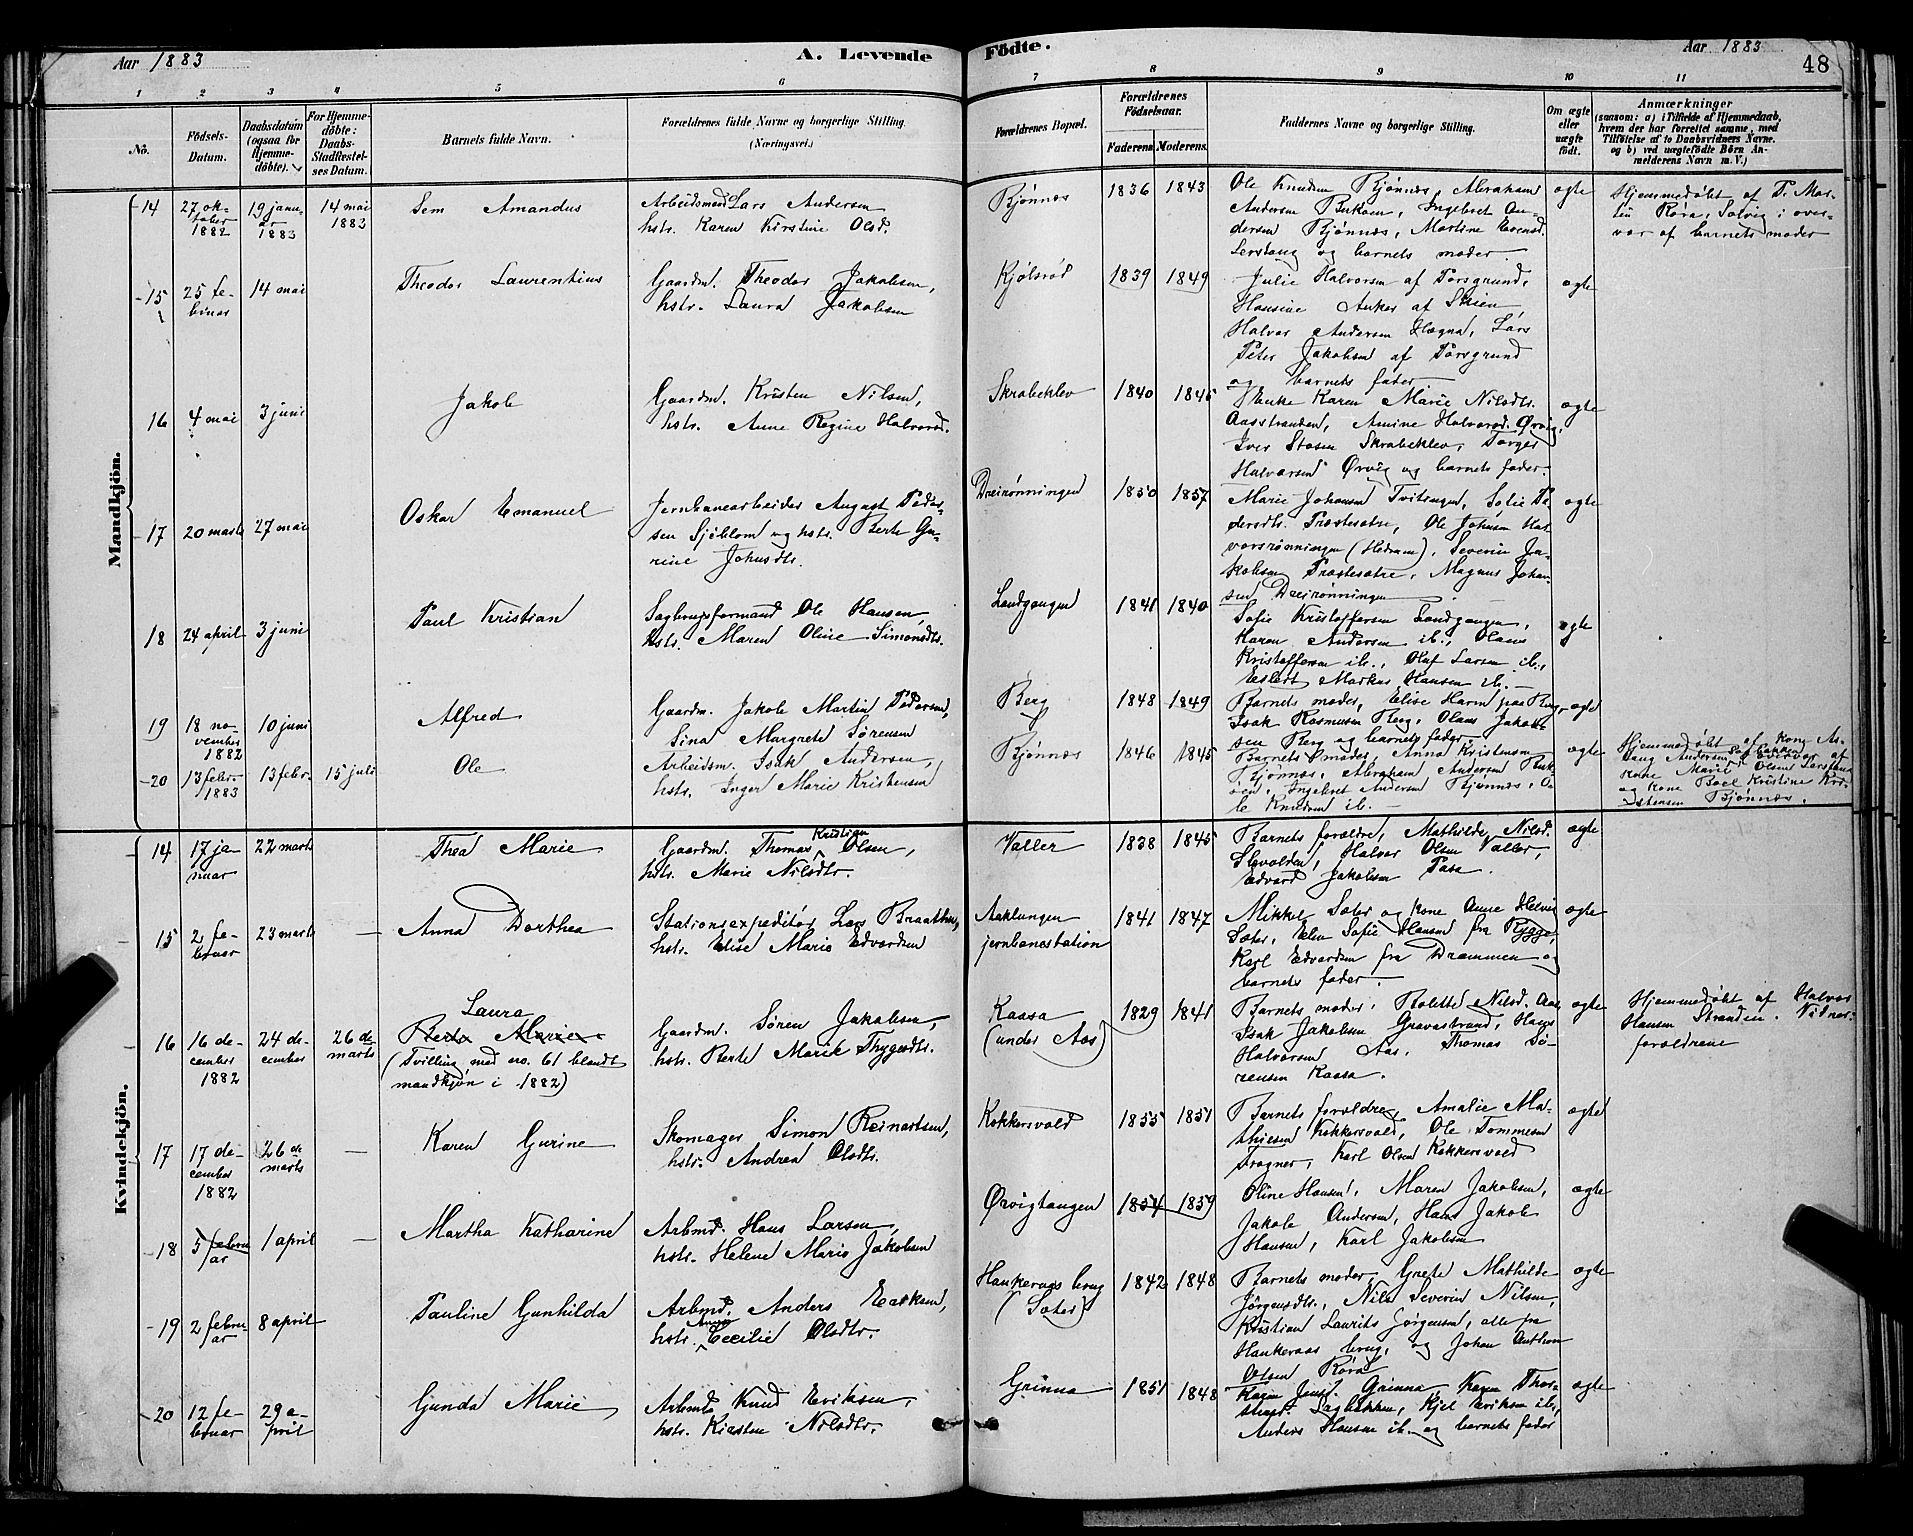 Aar 1883
A. Levende
Fødte.
Aar 1883
48
1 2 3 4 5 6 7 8 9 10 11
No.
Fødsels-
Datum.
Daabsdatum
(ogsaa for
Hjemme-
døbte).
For Hjemme-
døbte:
Daabs-
Stadfæstel-
ses Datum.
Barnets fulde Navn.
Forældrenes fulde Navne og borgerlige Stilling
(Næringsvei.)
Forældrenes Bopæl.
Forældrenes
Fødselsaar.
Faderens
Moderens.
Faddernes Navne og borgerlige Stilling.
Om ægte
eller
uægte
født.
Anmærkninger
(saasom: a) i Tilfælde af Hjemmedaab,
hvem der har forrettet samme, med
Tilføielse af to Daabsvidners Navne.
og b) ved uægtefødte Børn An-
melderens Navn m. V.)
Mandkjøn.
14
27 ok-
tober
1882
19 janu-
ar
1883
14 mai
1883
Sem Amandus
Arbeidsmand Lars Andersen
hstr. Karen Kirstine Olsd.
Bjønnæs
1836
1843
Ole Knudsen Bjønnæs, Abraham
Andersen Bukøen, Ingebret An-
dersen Bjønnæs, Martine Evensd.
Lerstang og barnets moder.
ægte
Hjemmedøbt af T. Mar-
tin Røra, Solvig i over-
vær af barnets moder
15
25 fe-
bruar
14 mai
Theodor Laurentius
Gaardm. Theodor Jakobsen,
hstr. Laura Jakobsen
Kjølsrød
1839
1849
Julie Halvorsen af Porsgrund,
Hansine Anker af Skien
Halvor Andersen Hægna, Lars
Peter Jakobsen af Porsgrund
og barnets fader
ægte
16
4 mai
3 juni
Jakob
Gaardm. Kristen Nilsen,
hstr. Anne Regine Halvorsd.
Skrabeklev
1840
1845
Enke Karen Marie Nilsdtr.
Aasstranden, Amine Halvorsd. Ørvig,
Iver Stosen Skrabeklev, Torger
Halvorsen Ørvig og barnets fader.
ægte
17
20 marts
27 mai
Oskar Emanuel
Jernbanearbeider August Peder-
sen Sjøblom og hstr. Berte Gu-
rine Johnsdtr.
Dreirønningen
1850
1857
Marie Johansen Tvitingen, Sofie Pe-
dersdtr. Præstesætre, Ole Johnsen Hal-
vorsrønningen (Hedrum), Severin Ja-
kobsen Præstesætre, Magnus Johan-
sen Dreirønningen
ægte
18
24 april
3 juni
Paul Kristian
Sagbrugsformand Ole Hansen,
hstr. Maren Oline Simonsdtr.
Landgangen
1841
1840
Sofie Kristoffersen Landgangen,
Karen Andersen ib., Olaus
Kristoffersen ib., Oluf Larsen ib.,
Eilert Markus Hansen ib.
ægte
19
18 no-
vember
1882
10 juni
Alfred
Gaardm. Jakob Martin Pedersen,
Sina Margrete Sørensen
Berg
1848
1849
Barnets moder, Elise Harm paa Berg,
Isak Rasmusen Berg, Olaus Jakob-
sen Berg og barnets fader
ægte
20
13 febr.
1883
13 febr.
15 juli
Ole
Arbeidsm. Isak Andersen,
hstr. Inger Marie Kristensen
Bjønnæs
1846
1845
Barnets moder, Anna Kristensen
Bjønnæs, Abraham Andersen Buk-
øen, Ingebret Andersen Bjønnæs, O-
le Knudsen ib.
ægte
Hjemmedøbt af kone
Andersen Sagbakken
i overvær af
kone Marie Olsen Lerstang
og kone Boel Kristine Kri-
stensen Bjønnæs.
Kvindekjøn.
14
17 ja-
nuar
22 marts
Thea Marie
Kristian
Gaardm. Thomas Olsen,
hstr. Marie Nilsdtr.
Valler
1838
1845
Barnets forældre, Mathilde Nilsd.
Slevolden, Halvor Olsen Valler,
Edvard Jakobsen Pasa.
ægte
15
2 fe-
bruar
23 marts
Anna Dorthea
Stationsexpeditør Lars Braathen,
hstr. Elise Marie Edvardsen
Aaklungen
jernbanestation
1841
1847
Mikkel Sæter og kone Anne Helvig
Sæter, Elen Sofie Hansen fra Rygge,
Karl Edvardsen fra Drammen og
barnets fader.
ægte
16
16 de-
cember
1882
24 de-
cember
26de
marts
Laura
Berte Marie
(Tvilling med no. 61 blandt
mandkjøn i 1882)
Gaardm. Søren Jakobsen,
hstr. Berte Marie Thygesdtr.
Kaasa
(under Aas)
1829
1841
Barnets moder, Bolette Nilsd. Aas
Isak Jakobsen Gravastrand, Hans
Halvorsen Aas, Thomas Sø-
rensen Kaasa.
ægte
Hjemmedøbt af Halvor
Hansen Stranden. Vidner:
forældrene
17
17 de-
cember
1882
26de
marts
Karen Gurine
Skomager Simon Reinertsen,
hstr. Andrea Olsdtr.
Kokkersvold
1855
1851
Barnets forældre, Amalie Ma-
thiesen Kokkersvold, Ole Tommesen
Frogner, Karl Olsen Kokkersvold
ægte
18
5 febru-
ar
1 april
Martha Katharine
Arbmd. Hans Larsen,
hstr. Helene Marie Jakobsen
Ørvigtangen
1854
1859
Oline Hansen, Maren Jakobsen,
Jakob Andersen, Hans Jakob
Hansen, Karl Jakobsen
ægte
19
2 febru-
ar
8 april
Pauline Gunhilda
Arbmd. Anders Isaksen,
hstr. Cecilie Olsdtr.
Hankeraas brug
(Sæter)
1842
1848
Barnets moder, Grete Mathilde
Jørgensdtr., Nils Severin Nilsen,
Kristian Laurits Jørgensen, alle fra
Hankeraas brug, og Johan Anthon
Olsen Røra
ægte
20
12 fe-
bruar
29 a-
pril
Gunda Marie
Arbmd. Knud Eriksen,
hstr. Kirsten Nilsdtr.
Grinna
1851
1848
Karen Jensd. Grinna, Karen Thor-
Sagbakken, Kjel Eriksen ib.,
Anders Hansen ib. og barnets fader
ægte